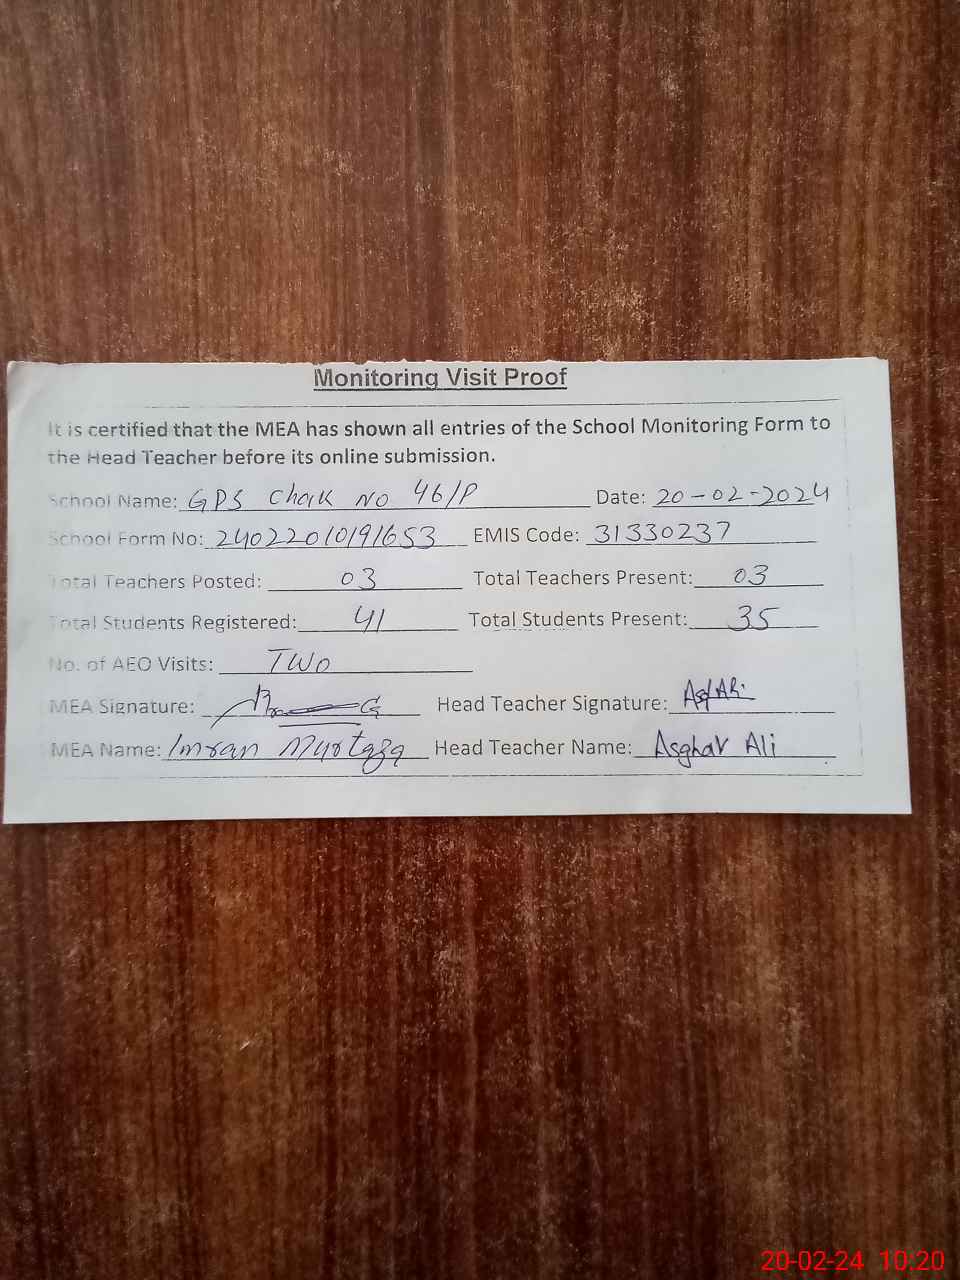 Monitoring Visit Proof
It is certified that the MEA has shown all entries of the School Monitoring Form to
the Head Teacher before its online submission.
School Name: GPS Chak No 46/P Date: 20-02-2024
School Form No: 24022010191653 EMIS Code: 31330237
Total Teachers Posted: 03 Total Teachers Present: 03
Total Students Registered: 41 Total Students Present: 35
No. of AEO Visits: Two
MEA Signature: Head Teacher Signature:
MEA Name: Imran Murtaza Head Teacher Name: Asghar Ali
20-02-24 10:20